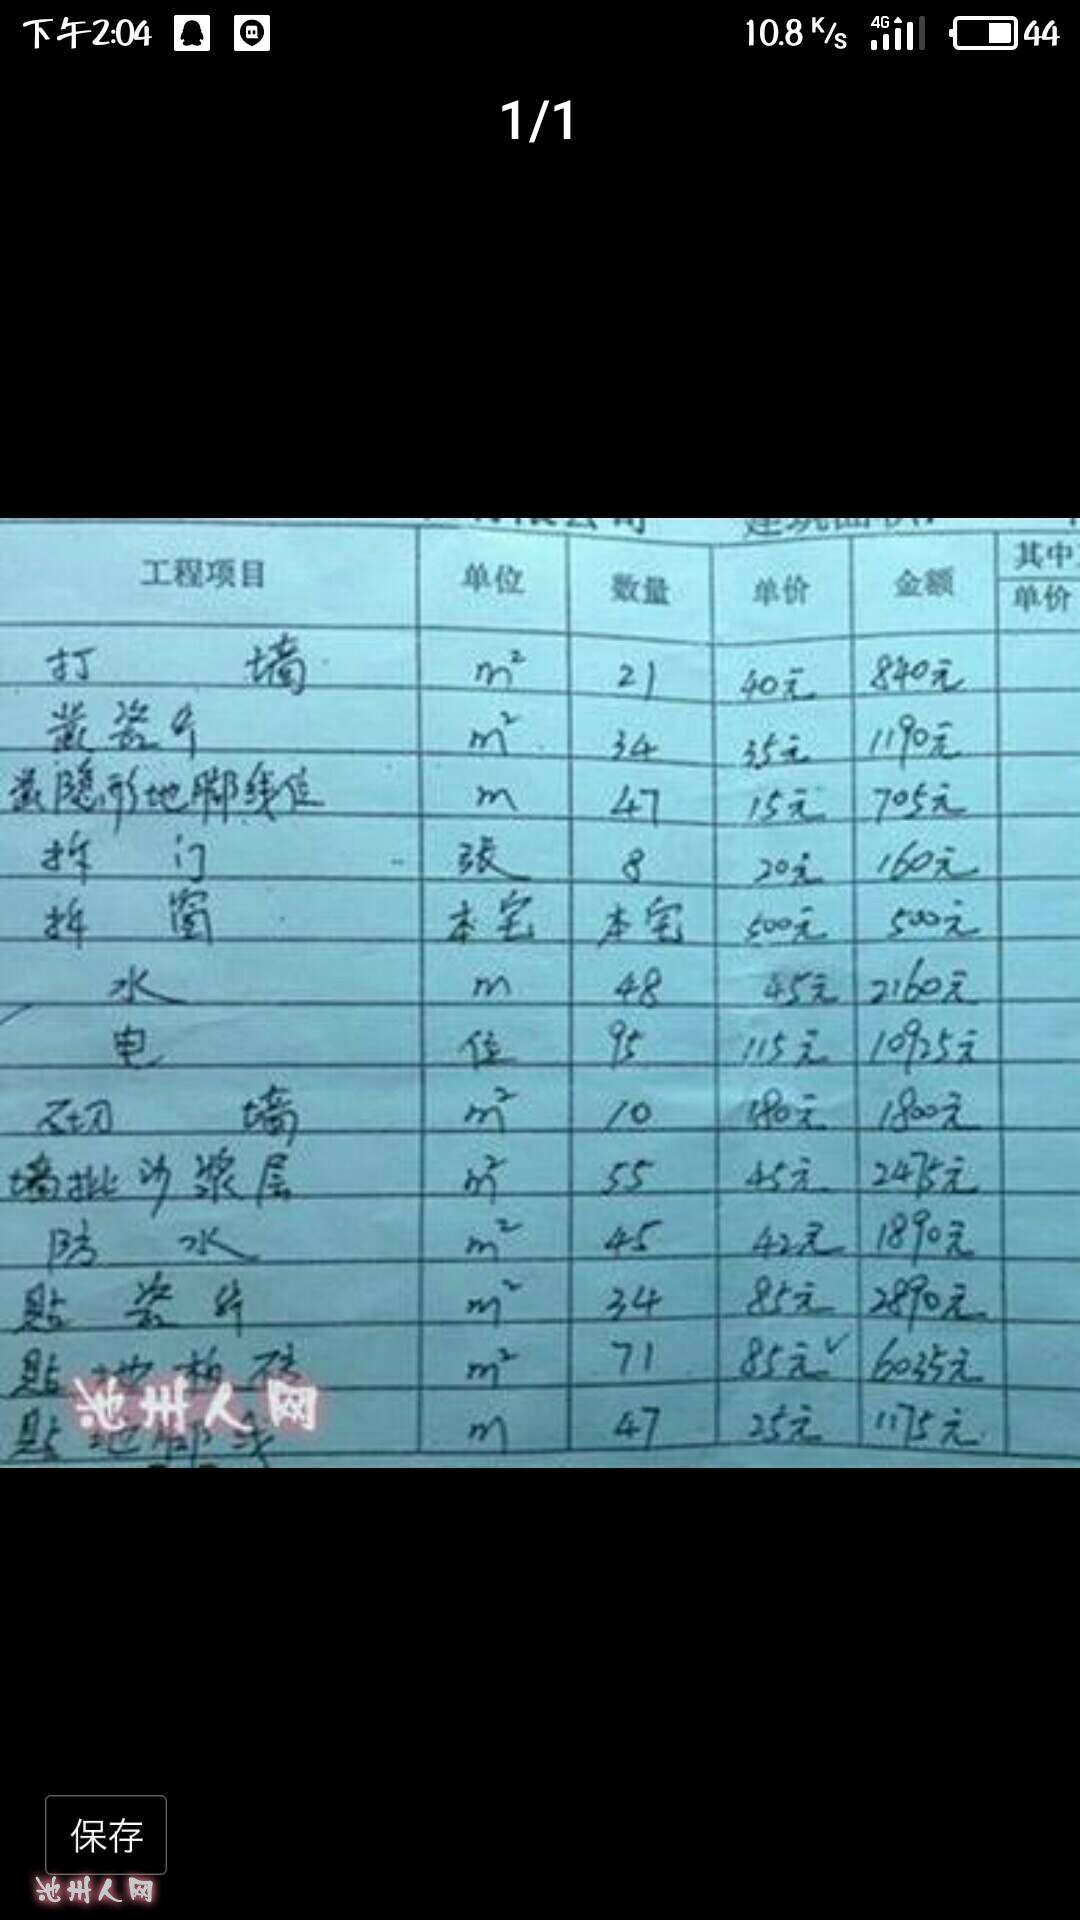 下午2:04 10.8 K/s 4G 44
1/1
工程项目 单位 数量 单价 金额 其中
单价
打 墙 m² 21 40元 840元
瓷片 m² 34 35元 1190元
隐形地脚线位 m 47 15元 705元
拆 门 张 8 20元 160元
拆 窗 本宅 本宅 500元 500元
水 m 48 45元 2160元
电 位 95 115元 10925元
砌 墙 m² 10 180元 1800元
墙批沙浆层 m² 55 45元 2475元
防 水 m² 45 42元 1890元
贴 瓷 片 m² 34 85元 2890元
贴 地 砖 m² 71 85元✓ 6035元
贴 地脚线 m 47 25元 1175元
池州人网
保存
池州人网